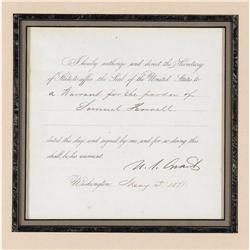 I hereby authorize and direct the Secretary
of State to affix the Seal of the United States to
a Warrant for the pardon of
Samuel
dated this day, and signed by me, and for so doing this
shall be his warrant.
U. S. Grant
Washington, 1871.